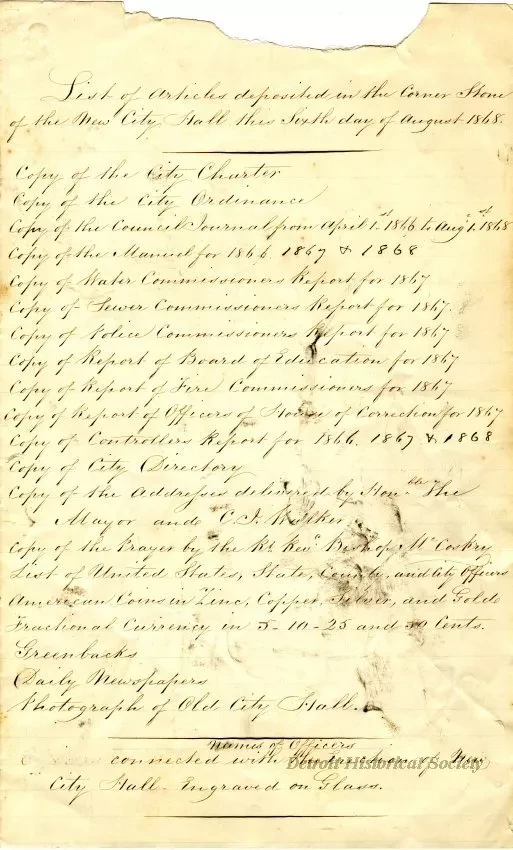 List of Articles deposited in the Corner Stone
of the New City Hall this Sixth day of August 1868.
Copy of the City Charter
Copy of the City Ordinance
Copy of the Council Journal from April 1st 1866 to Augt 1st 1868
Copy of the Manuel for 1866. 1867 & 1868
Copy of Water Commissioners Report for 1867
Copy of Sewer Commissioners Report for 1867.
Copy of Police Commissioners Report for 1867
Copy of Report of Board of Education for 1867
Copy of Report of Fire Commissioners for 1867
Copy of Report of Officers of House of Correction for 1867
Copy of Controllers Report for 1866. 1867 & 1868
Copy of City Directory
Copy of the Addresses delivered by Honble The
Mayor and C. I. Walker
Copy of the Prayer by the Rt. Revd. Bishop McCoskry
List of United States, State, County, and City Officers
American Coins in Zinc, Copper, Silver, and Gold
Fractional Currency in 5-10-25 and 50 Cents.
Greenbacks
Daily Newspapers
Photograph of Old City Hall.
Names of Officers
connected with the erection of New
Detroit Historical Society
City Hall. Engraved on Glass.